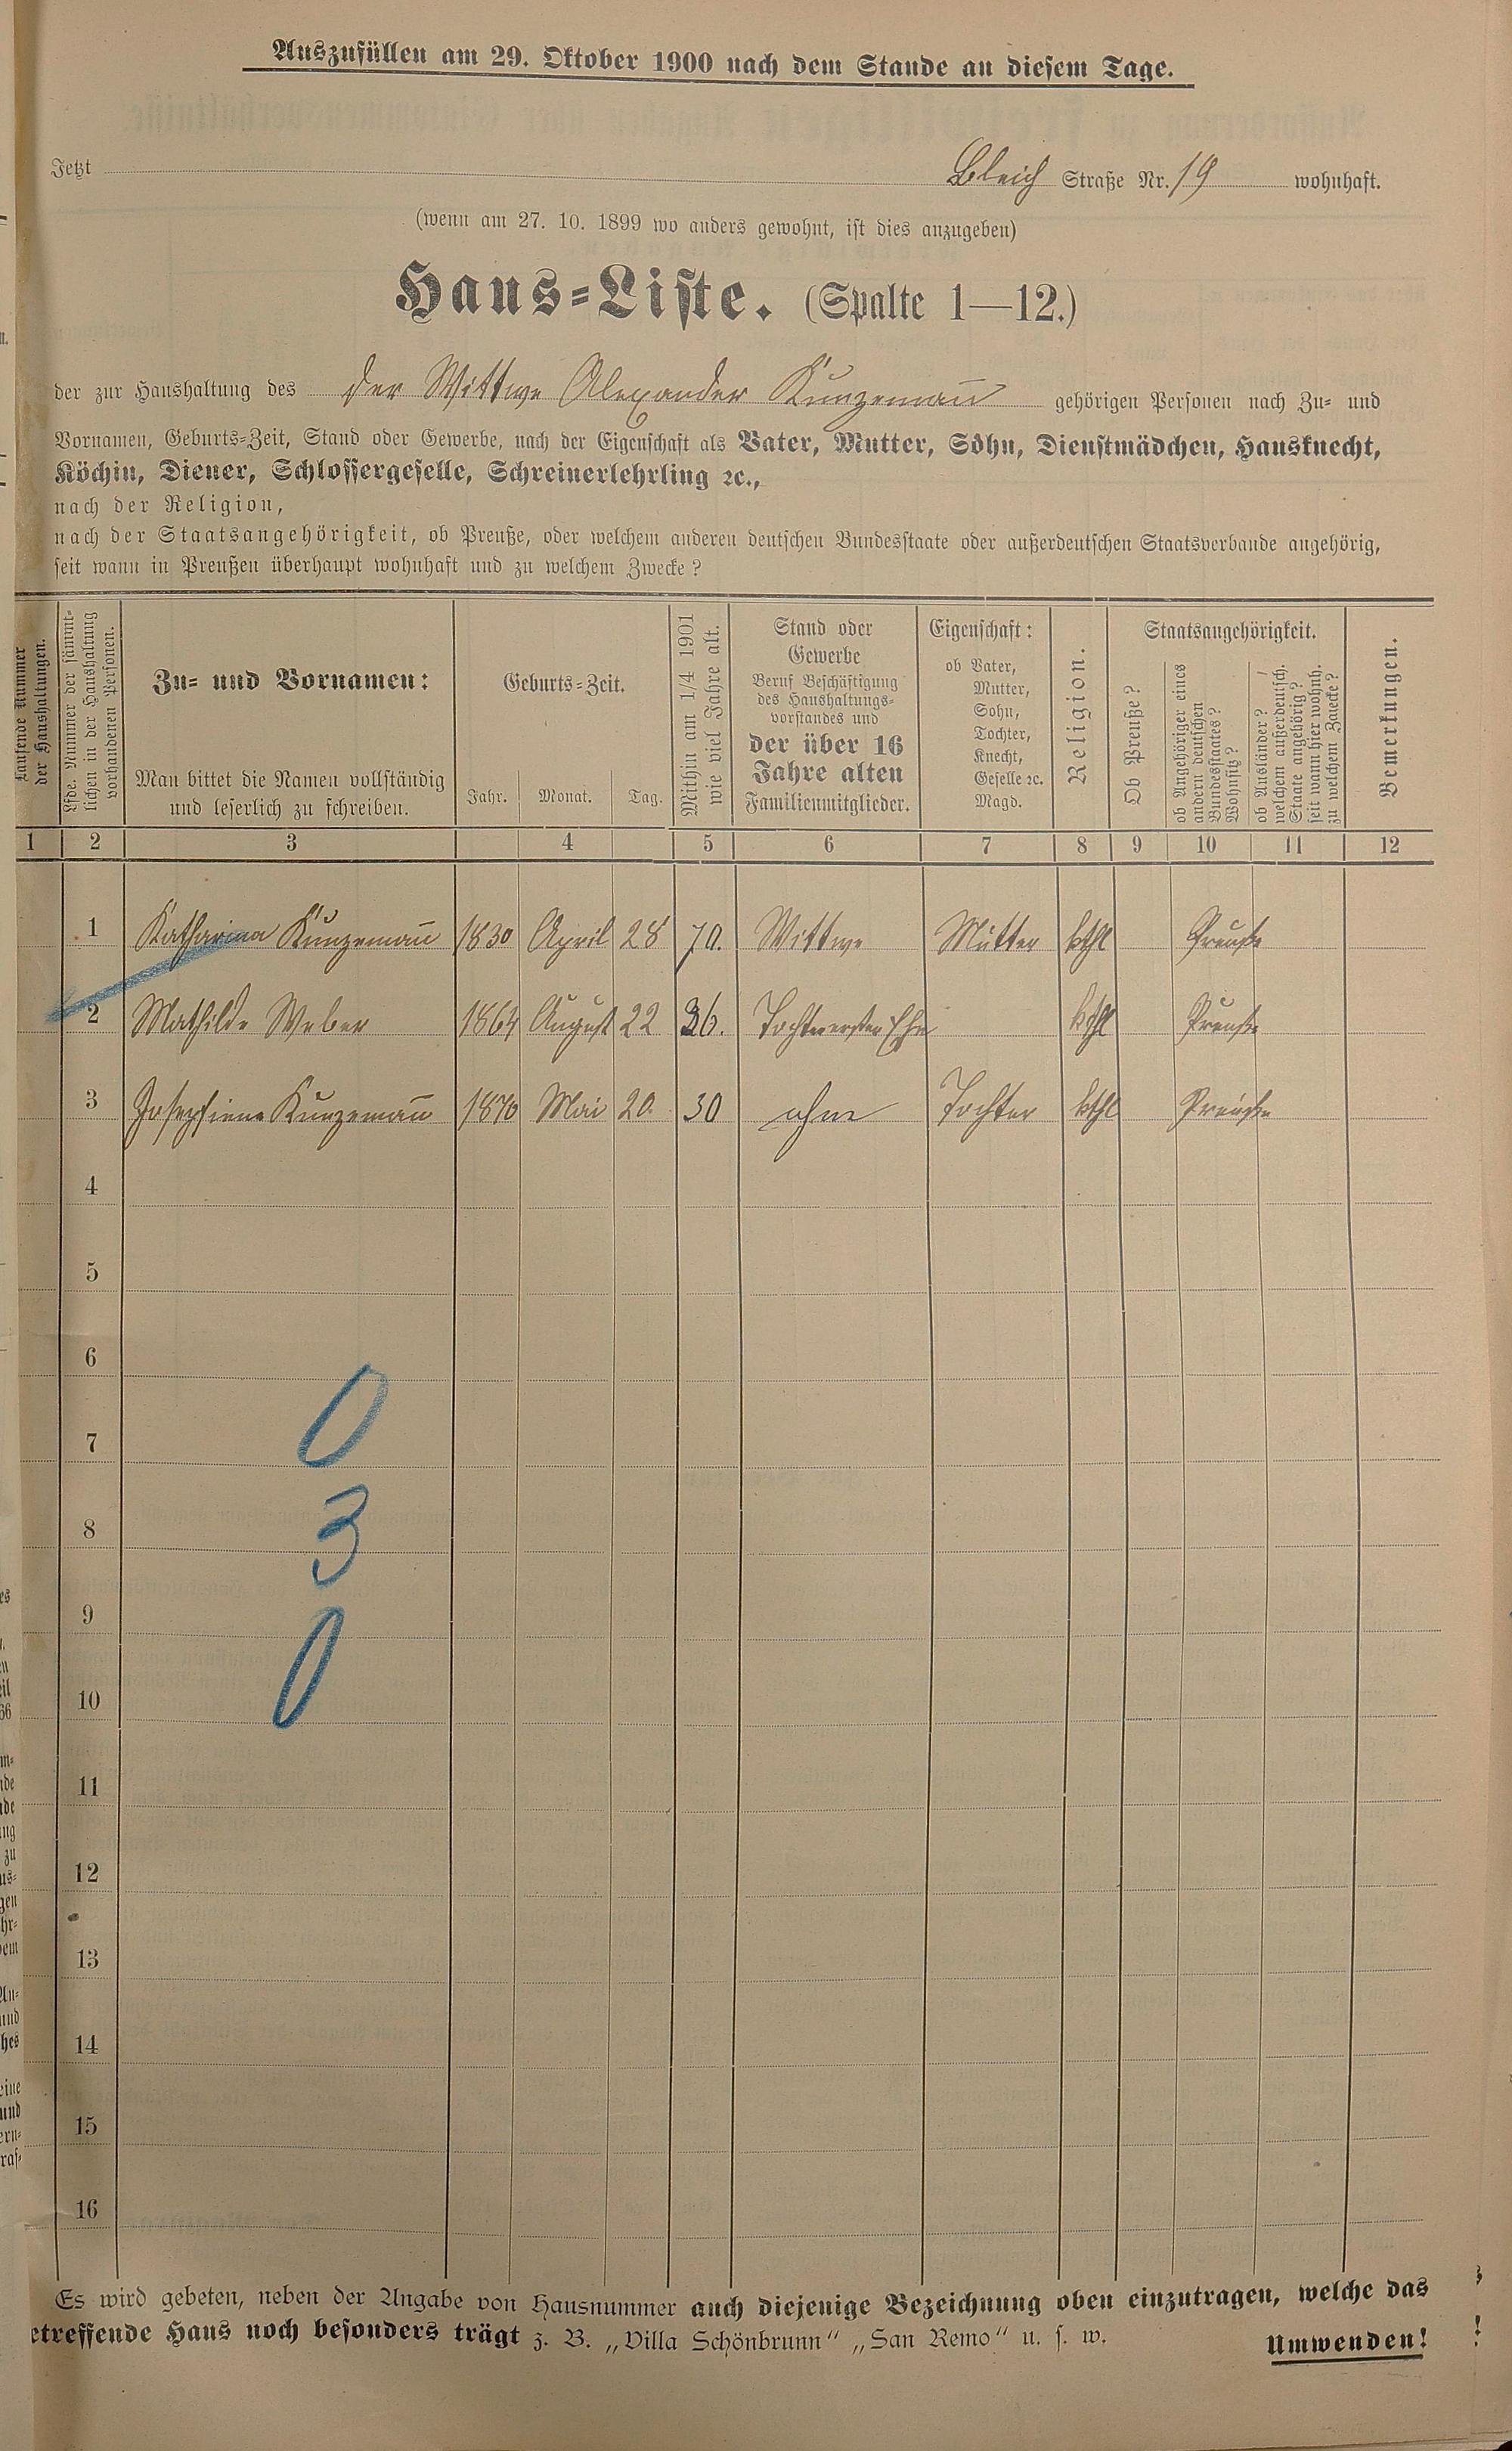 Auszufüllen am 29. Oktober 1900 nach dem Stande an diesem Tage.
Jetzt Bleich Straße Nr. 19 wohnhaft.
(wenn am 27. 10. 1899 wo anders gewohnt, ist dies anzugeben)
Haus-Liste. (Spalte 1—12.)
der zur Haushaltung des der Wittwe Alexander Kunzemañ gehörigen Personen nach Zu- und
Vornamen, Geburts-Zeit, Stand oder Gewerbe, nach der Eigenschaft als Vater, Mutter, Sohn, Dienstmädchen, Hausknecht,
Köchin, Diener, Schlossergeselle, Schreinerlehrling ꝛc.,
nach der Religion,
nach der Staatsangehörigkeit, ob Preuße, oder welchem anderen deutschen Bundesstaate oder außerdeutschen Staatsverbande angehörig,
seit wann in Preußen überhaupt wohnhaft und zu welchem Zwecke?
Laufende Nummer
der Haushaltungen.
Lfde. Nummer der sämmt-
lichen in der Haushaltung
vorhandenen Personen.
Zu- und Vornamen:
Man bittet die Namen vollständig
und leserlich zu schreiben.
Geburts-Zeit.
Jahr. Monat. Tag.
Mithin am 1/4 1901
wie viel Jahre alt.
Stand oder
Gewerbe
Beruf Beschäftigung
des Haushaltungs-
vorstandes und
der über 16
Jahre alten
Familienmitglieder.
Eigenschaft:
ob Vater,
Mutter,
Sohn,
Tochter,
Knecht,
Geselle ꝛc.
Magd.
Religion.
Staatsangehörigkeit.
Ob Preuße?
ob Angehöriger eines
andern deutschen
Bundesstaates?
Wohnsitz?
ob Ausländer?
welchem außerdeutsch.
Staate angehörig?
seit wann hier wohnh.
zu welchem Zwecke?
Bemerkungen.
1 2 3 4 5 6 7 8 9 10 11 12
1 Katharina Kunzemañ 1830 April 28 70. Wittwe Mutter kthl Preuße
2 Mathilde Weber 1864 August 22 36. Tochter erster Ehe kthl Preuße
3 Josephiene Kunzemañ 1870 Mai 20. 30 ohne Tochter kthl Preuße
4
5
6
0
7
3
8
9
0
10
11
12
13
14
15
16
Es wird gebeten, neben der Angabe von Hausnummer auch diejenige Bezeichnung oben einzutragen, welche das
etreffende Haus noch besonders trägt z. B. „Villa Schönbrunn“ „San Remo“ u. s. w. Umwenden!